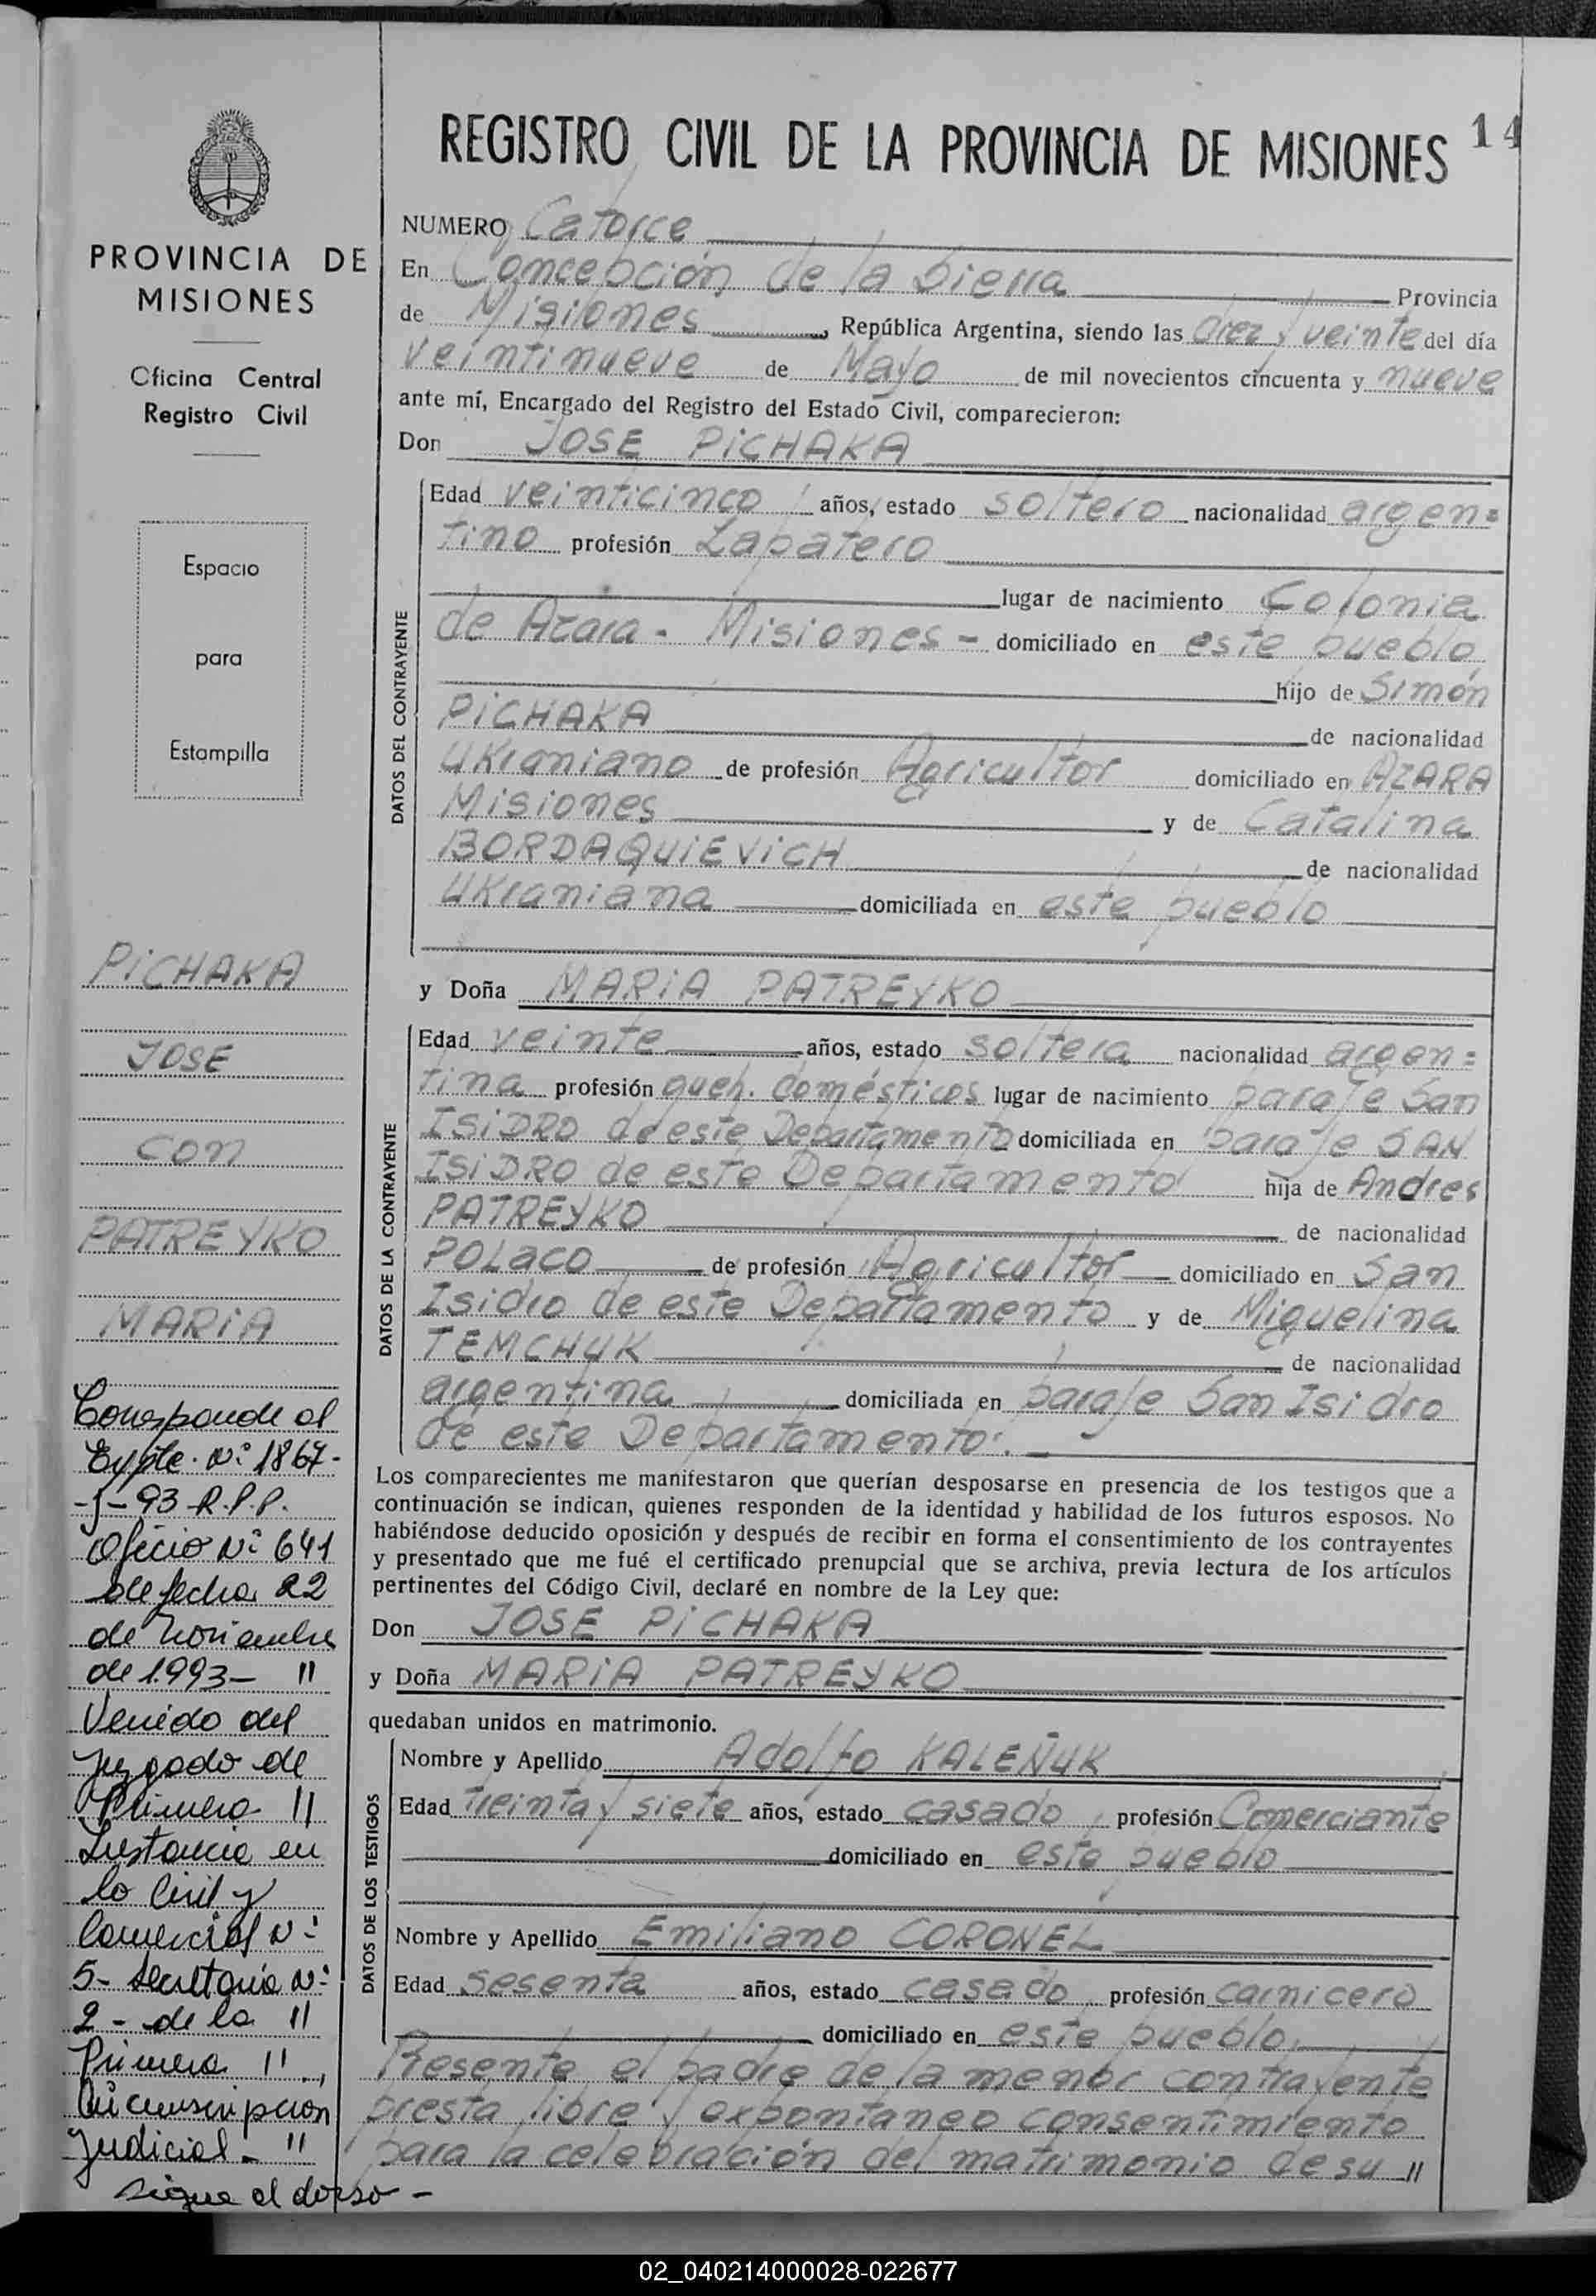 REGISTRO CIVIL DE LA PROVINCIA DE MISIONES 14
PROVINCIA DE
MISIONES
Oficina Central
Registro Civil
Espacio
para
Estampilla
PICHAKA
JOSE
con
PATREYKO
MARIA
Corresponde al
Expte. Nº: 1867-
-J-93-R.P.P.
Oficio Nº 641
de fecha 22
de Noviembre
de 1.993- "
Venido del
Juzgado de
Primera "
Instancia en
lo Civil y
Comercial Nº
5- Secretaría Nº
2- de la "
Primera "
Circunscripción
Judicial- "
sigue al dorso-
NUMERO Catorce
En Concepción de la Sierra Provincia
de Misiones, República Argentina, siendo las diez y veinte del día
veintinueve de Mayo de mil novecientos cincuenta y nueve
ante mí, Encargado del Registro del Estado Civil, comparecieron:
Don JOSE PiCHAKA
DATOS DEL CONTRAYENTE
Edad veinticinco años, estado soltero nacionalidad argen=
tino profesión Zapatero
lugar de nacimiento Colonia
de Azara - Misiones - domiciliado en este pueblo
hijo de Simón
PiCHAKA de nacionalidad
Ukraniano de profesión Agricultor domiciliado en AZARA
Misiones y de Catalina
BORDAQUiEViCH de nacionalidad
Ukraniana domiciliada en este pueblo
y Doña MARiA PATREYKO
DATOS DE LA CONTRAYENTE
Edad veinte años, estado soltera nacionalidad argen=
tina profesión queh. domésticos lugar de nacimiento paraje San
ISiDRO de este Departamento domiciliada en paraje SAN
ISiDRO de este Departamento hija de Andres
PATREYKO de nacionalidad
POLACO de profesión Agricultor domiciliado en San
Isidro de este Departamento y de Miguelina
TEMCHUK de nacionalidad
argentina domiciliada en paraje San Isidro
de este Departamento.
Los comparecientes me manifestaron que querían desposarse en presencia de los testigos que a
continuación se indican, quienes responden de la identidad y habilidad de los futuros esposos. No
habiéndose deducido oposición y después de recibir en forma el consentimiento de los contrayentes
y presentado que me fué el certificado prenupcial que se archiva, previa lectura de los artículos
pertinentes del Código Civil, declaré en nombre de la Ley que:
Don JOSE PiCHAKA
y Doña MARiA PATREYKO
quedaban unidos en matrimonio.
DATOS DE LOS TESTIGOS
Nombre y Apellido Adolfo KALEÑUK
Edad Treinta y siete años, estado casado, profesión Comerciante
domiciliado en este pueblo
Nombre y Apellido Emiliano CORONEL
Edad sesenta años, estado casado, profesión carnicero
domiciliado en este pueblo,
Presente el padre de la menor contrayente
presta libre y expontaneo consentimiento
para la celebración del matrimonio de su "
02_040214000028-022677